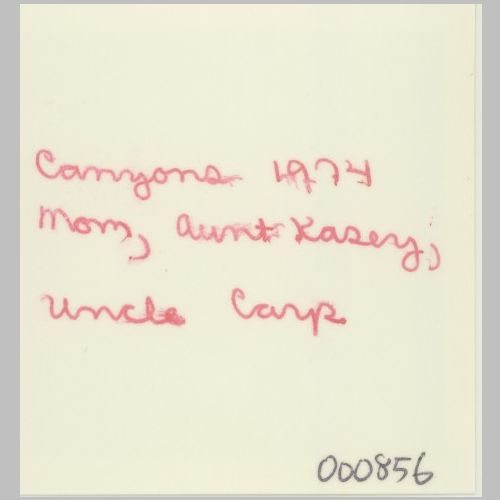 Canyons 1974
Mom, Aunt Kasey,
Uncle Carp
000856